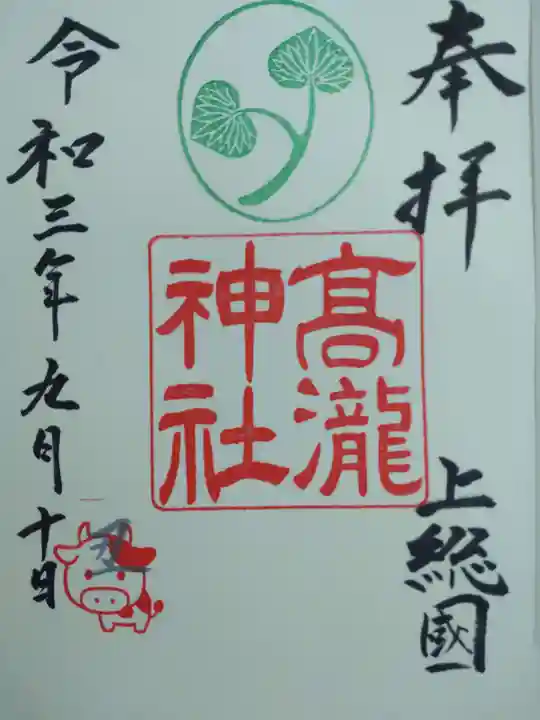 奉拝
上総國
髙瀧
神社
令和三年九月十日
丑